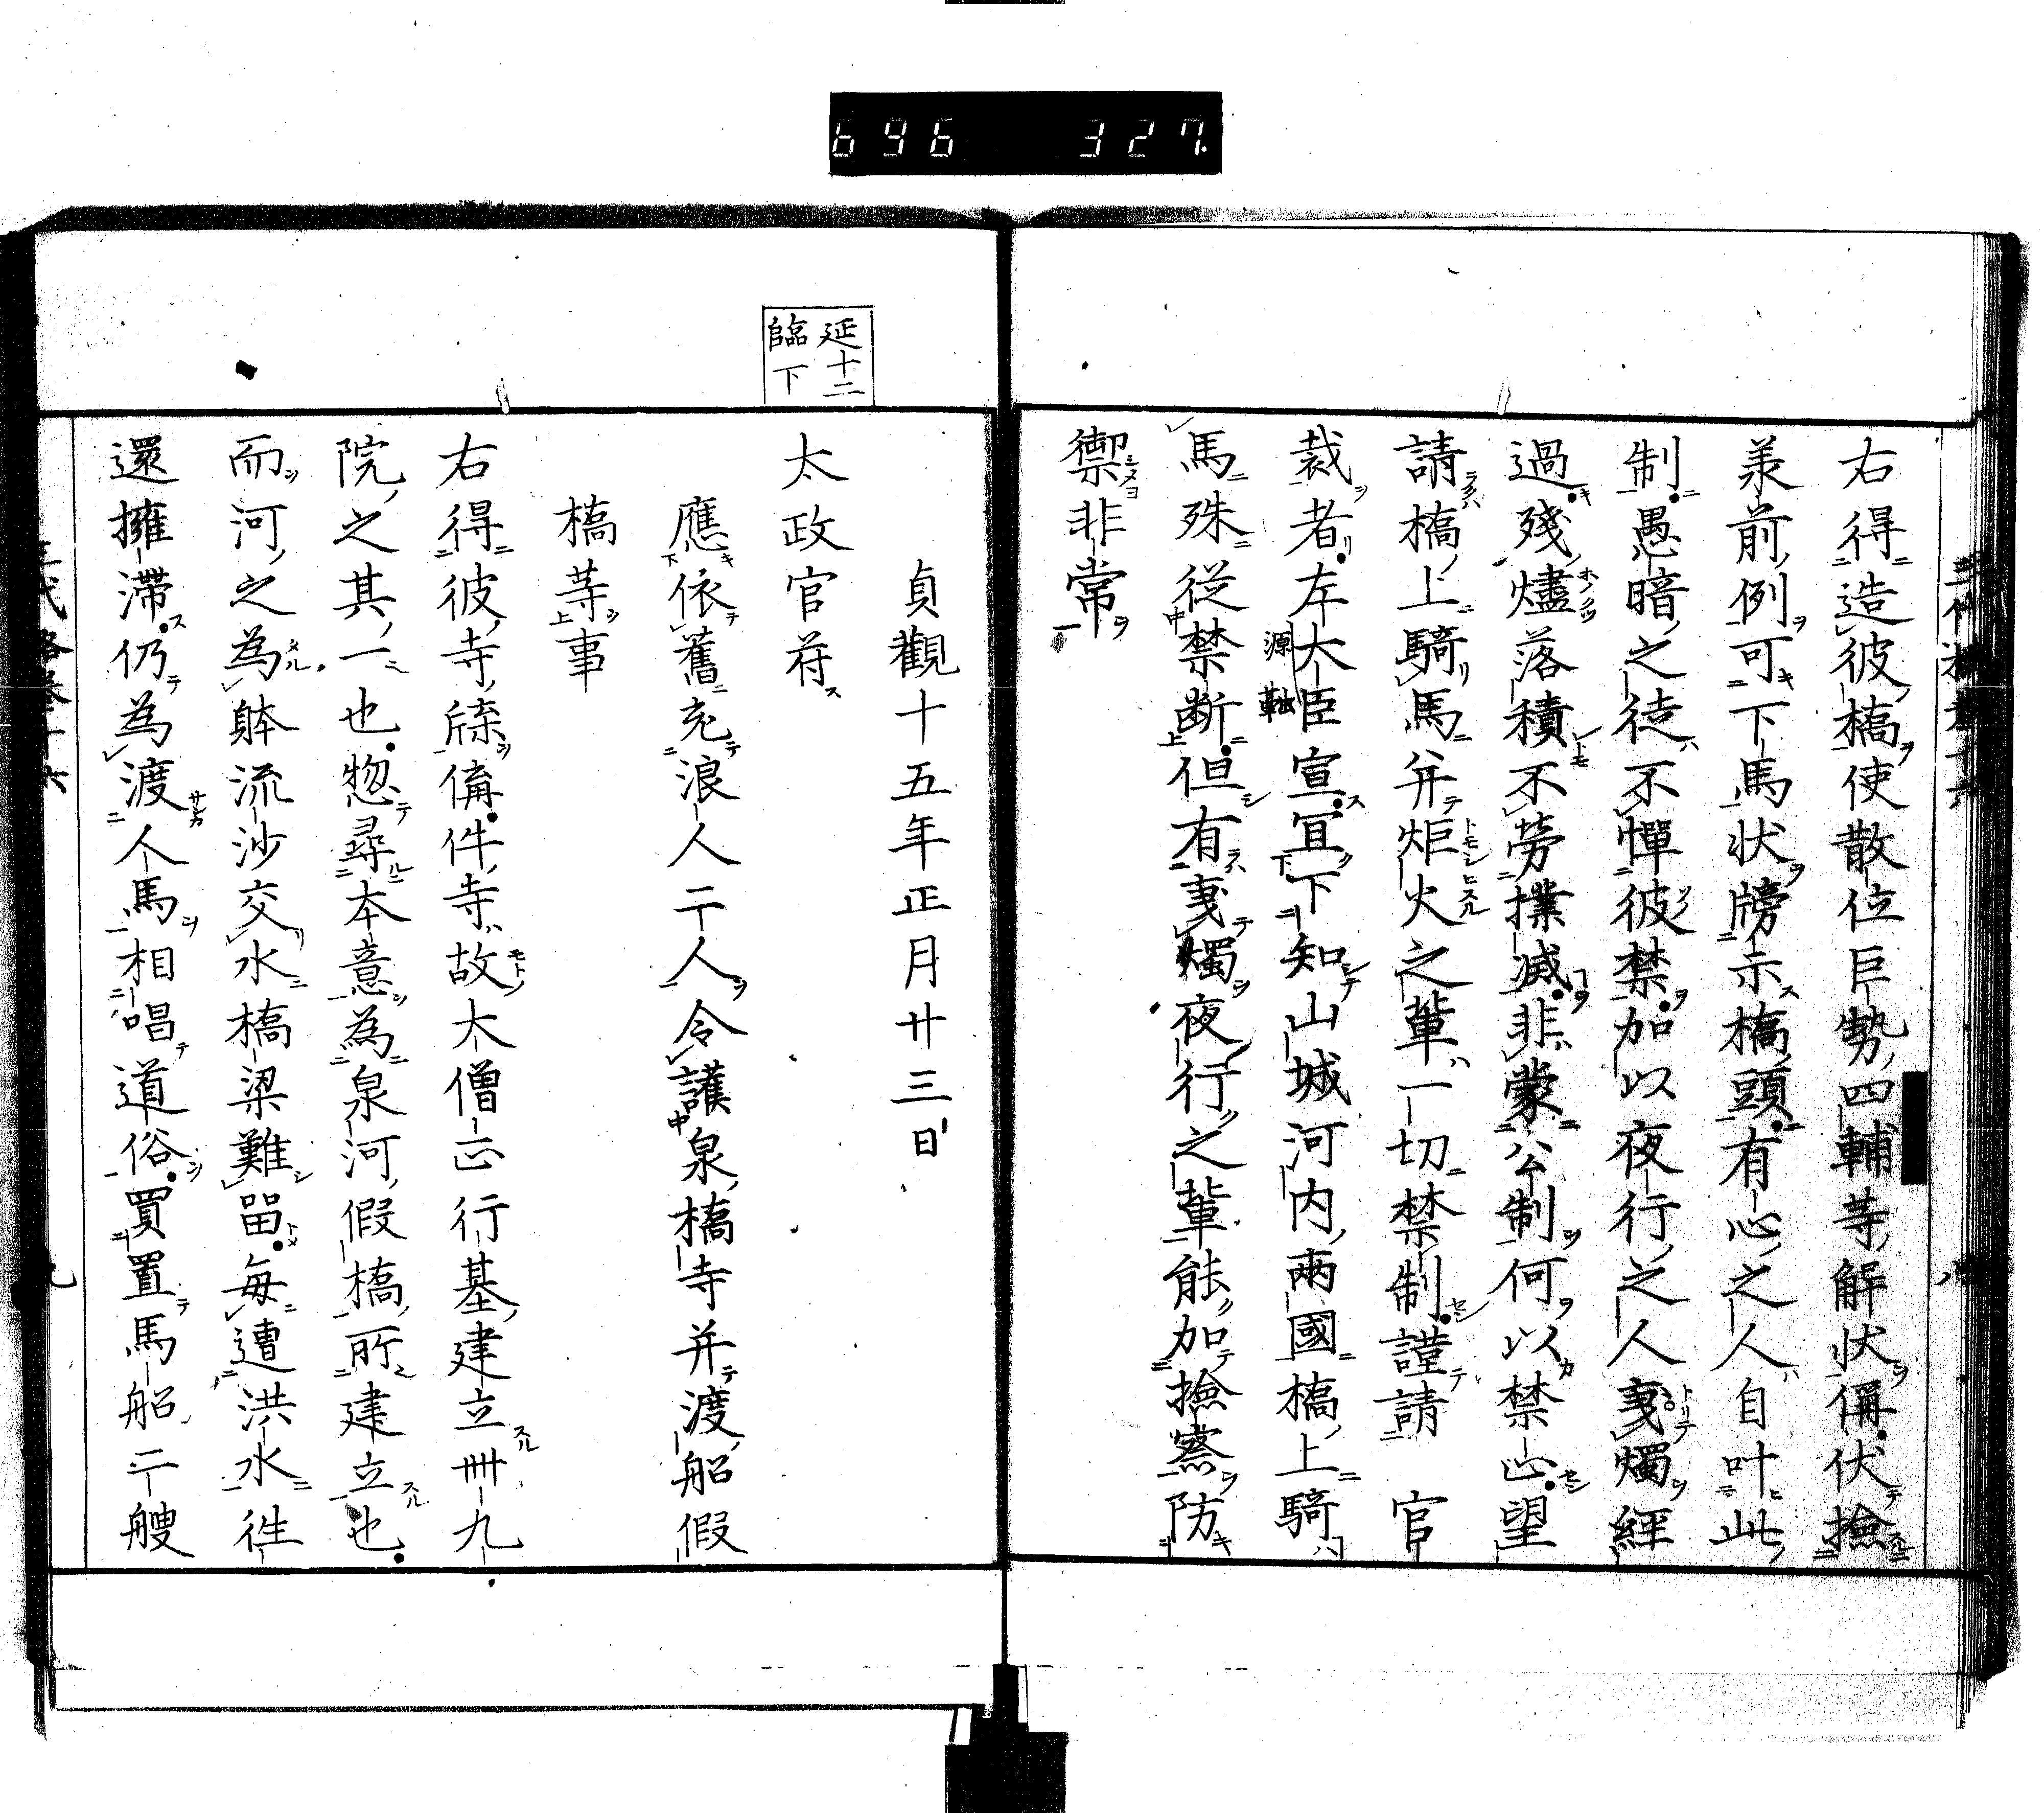 696 327
右得造彼橋使散位巨勢四輔等解状偁伏撿
美前例可下馬状牓示橋頭有心之人自叶此
制愚暗之徒不憚彼禁加以夜行之人戔燭経
過殘燼落積不勞撲滅非蒙公制何以禁止望
請橋上騎馬并炬火之輩一切禁制謹請 官
裁者左大臣宣冝下知山城河内兩國橋上騎
源融
馬殊從禁断但有戔燭夜行之輩能加撿察防
禦非常
貞觀十五年正月廿三日
延十二
臨下
太政官苻
應依舊充浪人二人令護泉橋寺并渡船假
橋等事
右得彼寺牒偁件寺故大僧正行基建立卌九
院之其一也惣尋本意為泉河假橋所建立也
而河之為躰流沙交水橋梁難留毎遭洪水徃
還擁滞仍為渡人馬相唱道俗買置馬船二艘